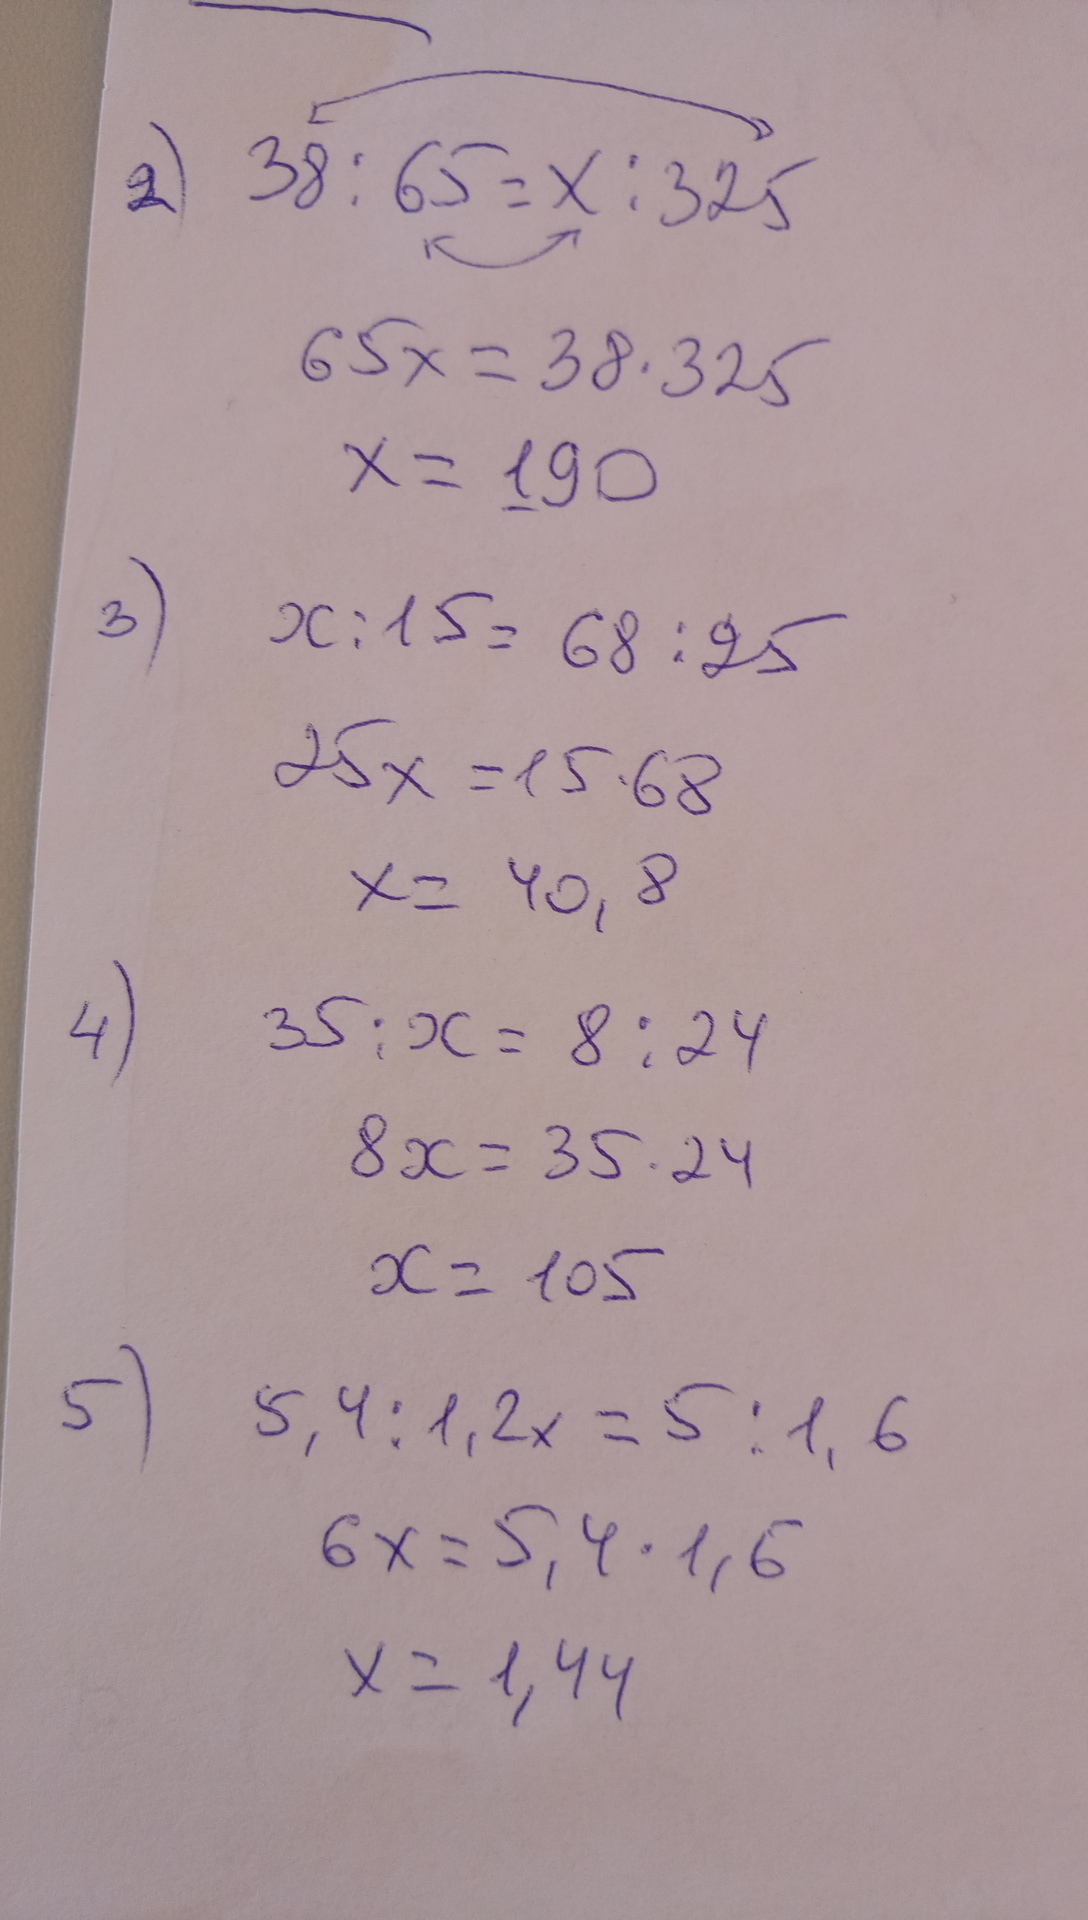 2) 38:65=x:325
65x=38·325
x=190
3) x:15=68:25
25x=15·68
x=40,8
4) 35:x=8:24
8x=35·24
x=105
5) 5,4:1,2x=5:1,6
6x=5,4·1,6
x=1,44